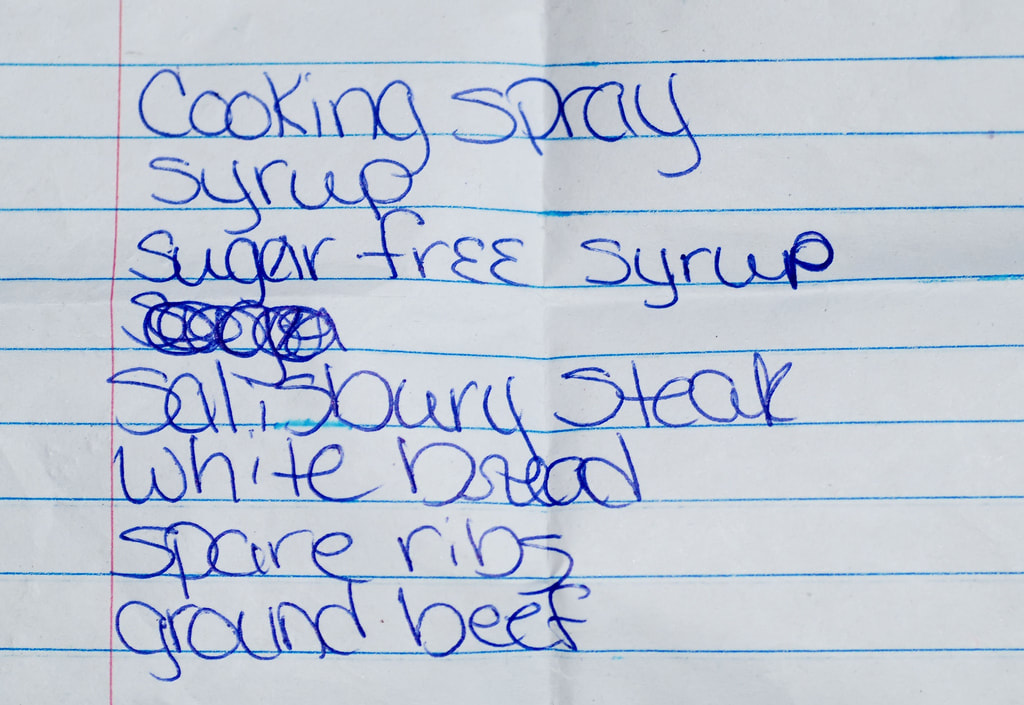 Cooking spray
syrup
sugar free syrup
Salisbury steak
white bread
spare ribs
ground beef